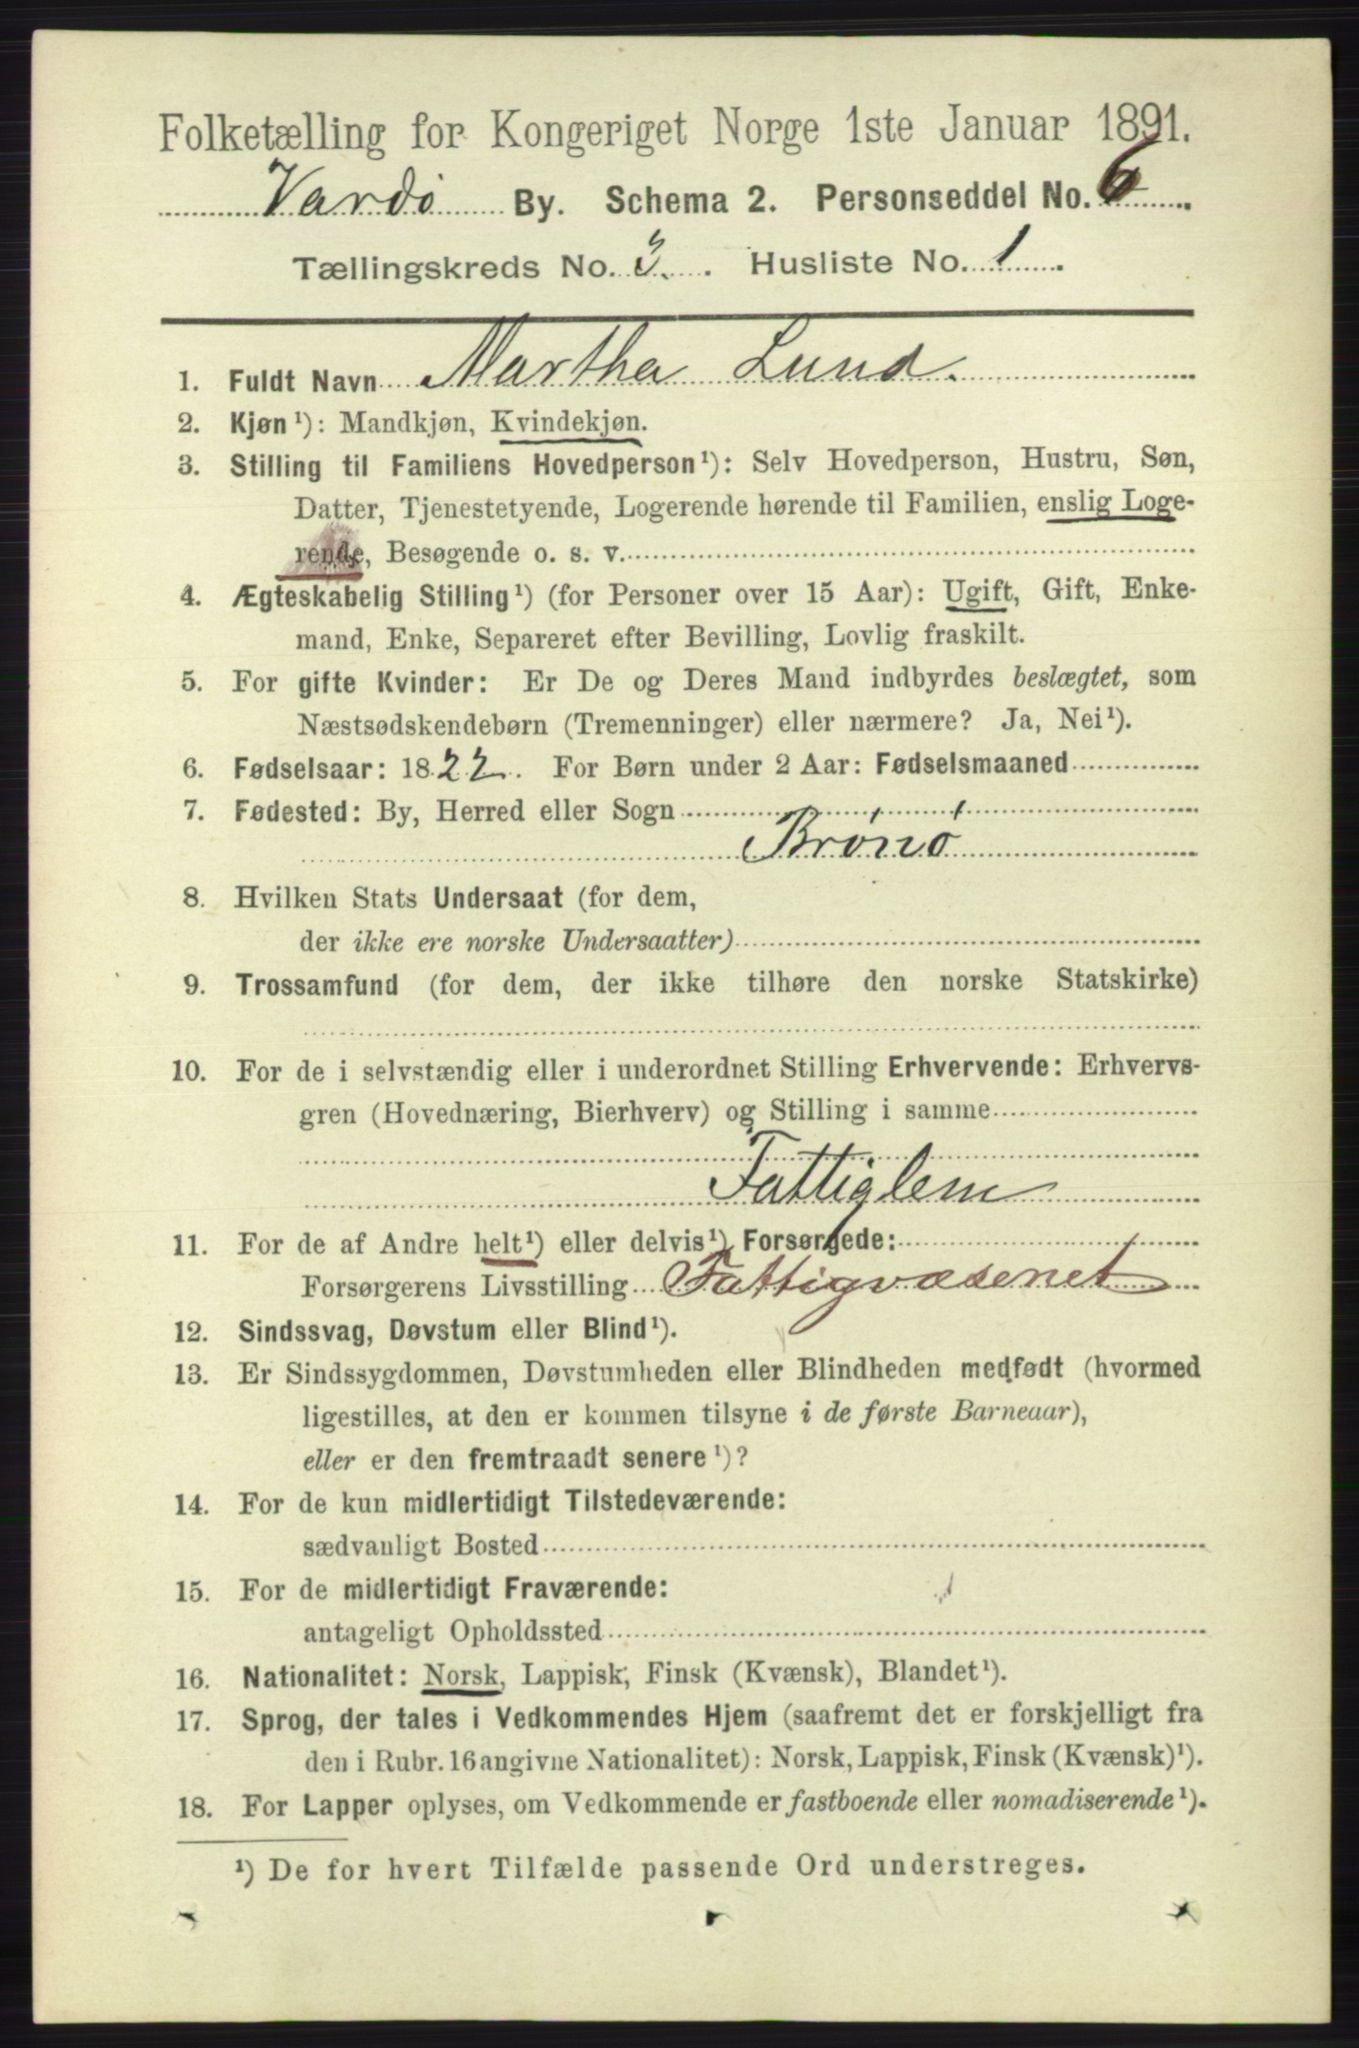 Folketælling for Kongeriget Norge 1ste Januar 1891.
Vardø By. Schema 2. Personseddel No. 6
Tællingskreds No. 3. Husliste No. 1
1. Fuldt Navn Martha Lund.
2. Kjøn¹): Mandkjøn, Kvindekjøn.
3. Stilling til Familiens Hovedperson¹): Selv Hovedperson, Hustru, Søn,
Datter, Tjenestetyende, Logerende hørende til Familien, enslig Loge-
rende, Besøgende o. s. v.
4. Ægteskabelig Stilling¹) (for Personer over 15 Aar): Ugift, Gift, Enke-
mand, Enke, Separeret efter Bevilling, Lovlig fraskilt.
5. For gifte Kvinder: Er De og Deres Mand indbyrdes beslægtet, som
Næstsødskendebørn (Tremenninger) eller nærmere? Ja, Nei¹).
6. Fødselsaar: 1822. For Børn under 2 Aar: Fødselsmaaned
7. Fødested: By, Herred eller Sogn
Brønø
8. Hvilken Stats Undersaat (for dem,
der ikke ere norske Undersaatter)
9. Trossamfund (for dem, der ikke tilhøre den norske Statskirke)
10. For de i selvstændig eller i underordnet Stilling Erhvervende: Erhvervs-
gren (Hovednæring, Bierhverv) og Stilling i samme
Fattiglem
11. For de af Andre helt¹) eller delvis¹) Forsørgede:
Forsørgerens Livsstilling Fattigvæsenet
12. Sindssvag, Døvstum eller Blind¹).
13. Er Sindssygdommen, Døvstumheden eller Blindheden medfødt (hvormed
ligestilles, at den er kommen tilsyne i de første Barneaar),
eller er den fremtraadt senere¹)?
14. For de kun midlertidigt Tilstedeværende:
sædvanligt Bosted
15. For de midlertidigt Fraværende:
antageligt Opholdssted
16. Nationalitet: Norsk, Lappisk, Finsk (Kvænsk), Blandet¹).
17. Sprog, der tales i Vedkommendes Hjem (saafremt det er forskjelligt fra
den i Rubr. 16 angivne Nationalitet): Norsk, Lappisk, Finsk (Kvænsk)¹).
18. For Lapper oplyses, om Vedkommende er fastboende eller nomadiserende¹).
¹) De for hvert Tilfælde passende Ord understreges.